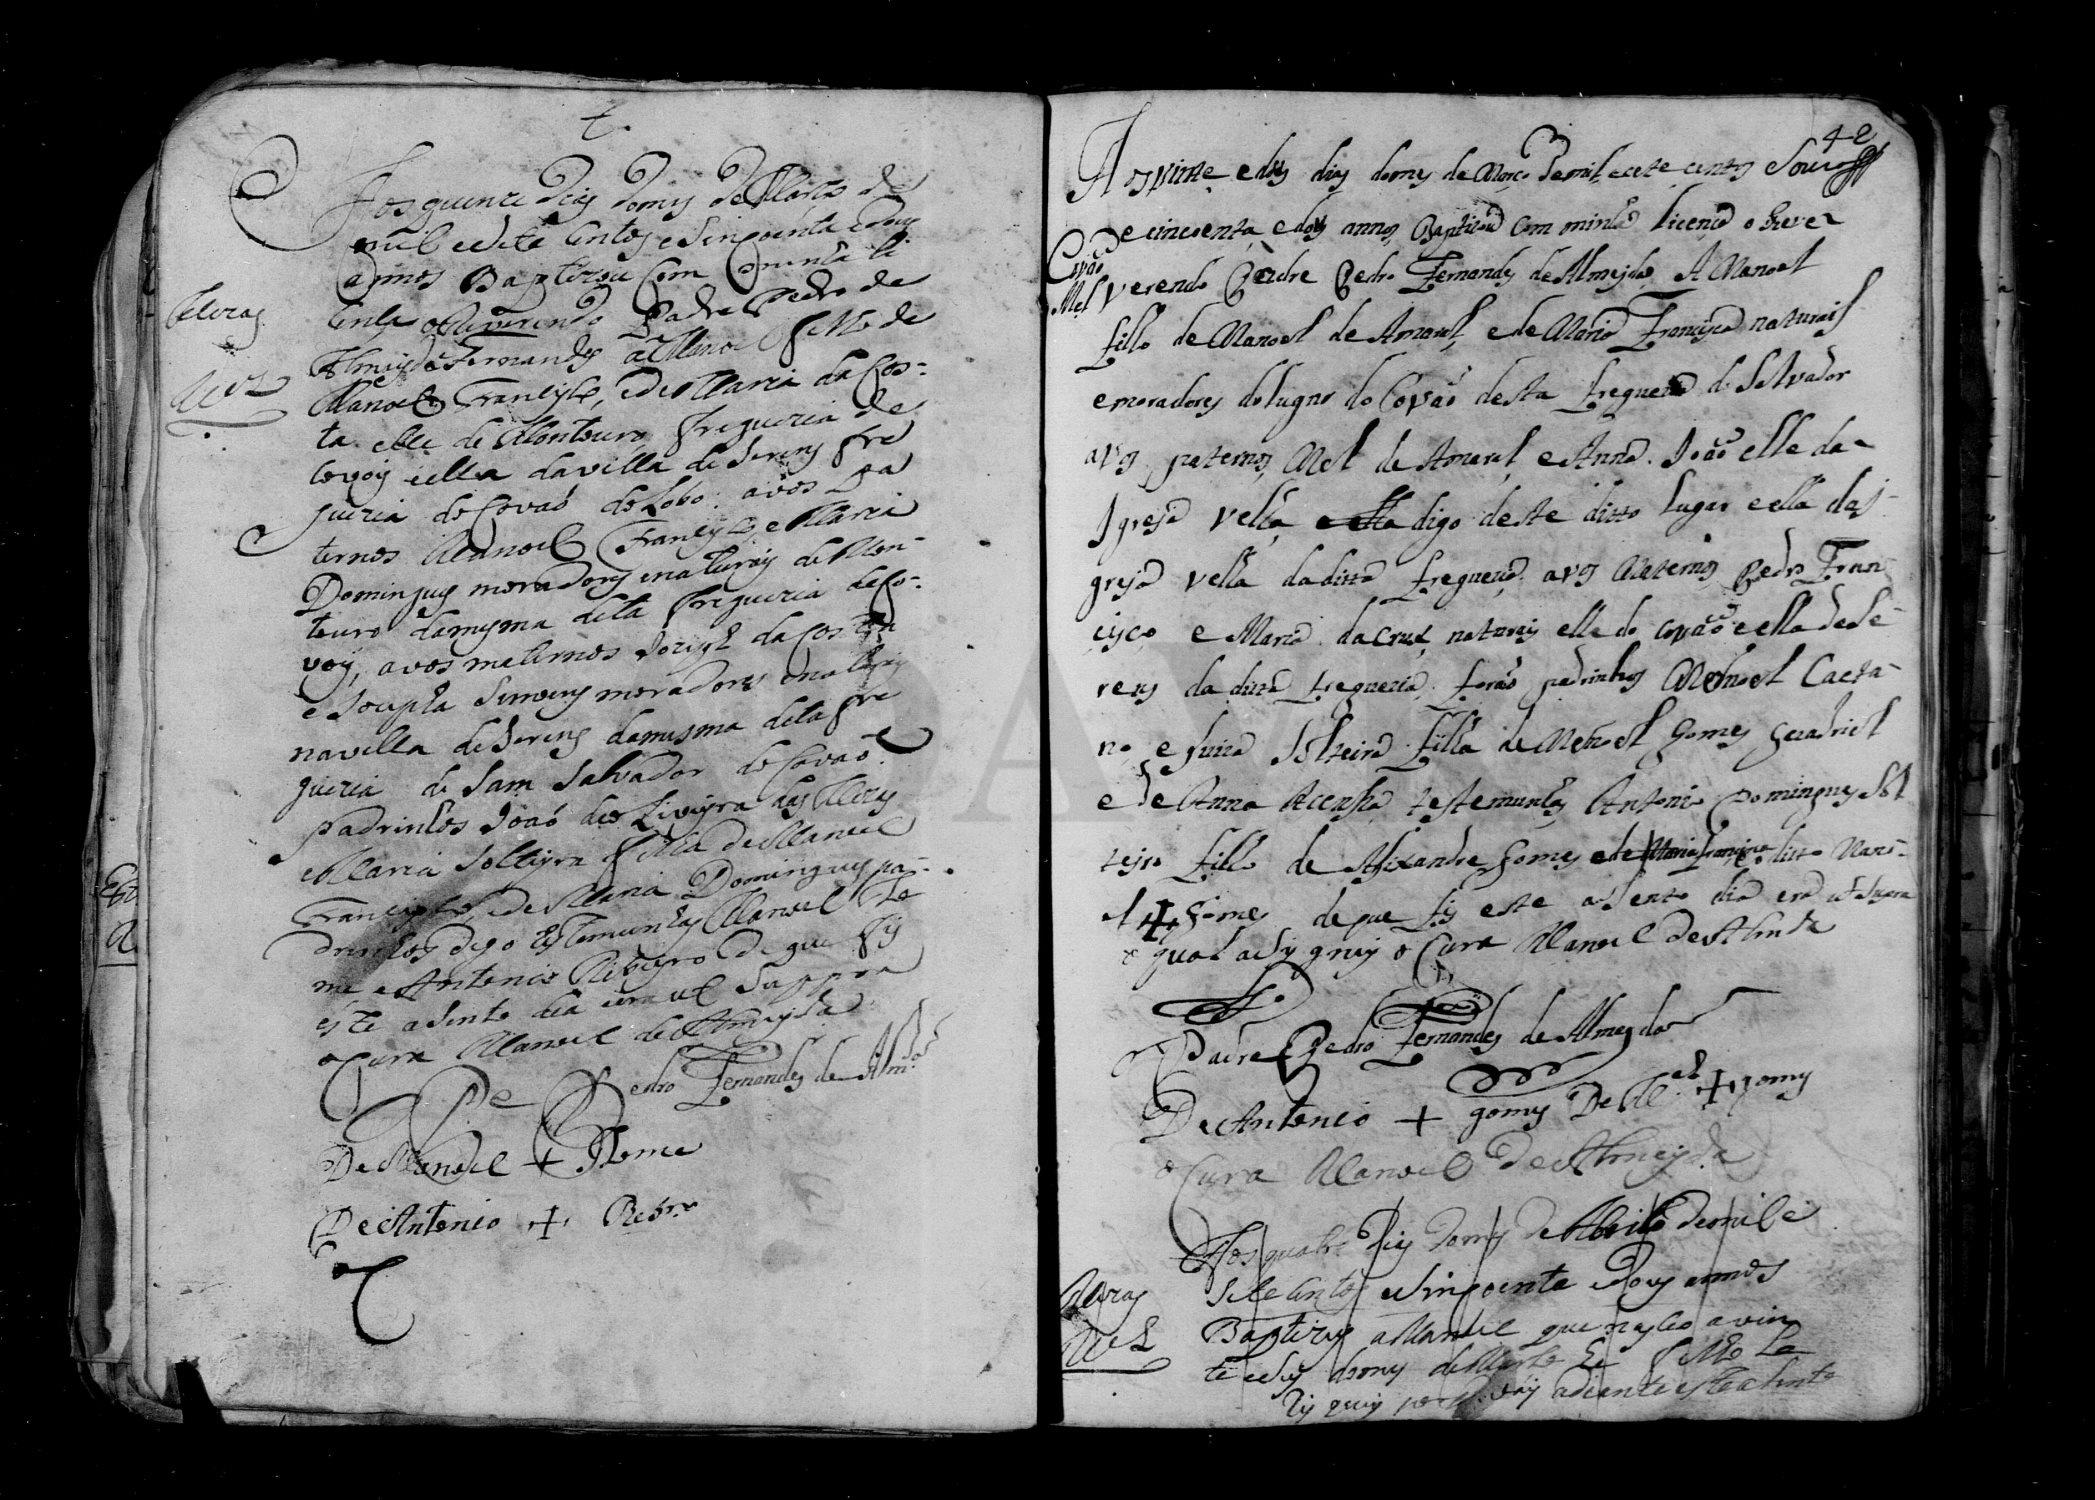 Aos quinze dias do mes de Março de
mil e sete centos e sincoenta e dous
annos Baptizou com minha li
cença o Reverendo Padre Pedro de
Almeyda Fernandes a Manoel filho de
Manoel Francisco, e de Maria da Cos-
ta elle de Montouro freguezia de
Covoỹ e ella da villa de Serens fre
guezia de Covaó do Lobo: avós pa
ternos Manoel Francisco, e Maria
Domingues moradores e naturais de Mon-
touro da mesma dita freguezia de Co-
voỹ, avos maternos da Costa
e Simoens moradores e naturais
na villa de Serens da mesma dita fre
guezia de Sam Salvador do Covaó
padrinhos Joaó de Oliveyra das
e Maria Solteyra filha de Manoel
Francisco, e de Maria Domingues pa-
drinhos digo testemunhas Manoel To
me e Antonio Ribeyro de que fis
este asento dia era ut suppra
o Cura Manoel de Almeyda
Pe Pedro Fernandes de Almda
De Manoel + Thome
De Antonio + Ribro
Mel
42
Aos vinte e dous dias do mes de Março de mil e sete centos
e cincoenta e dous annos Baptizou com minha licença o Reve-
Covão
Mel
verendo Padre Pedro Fernandes de Almejda A Manoel
fillo de Manoel de Amaral e de Maria Francisca naturais
e moradores do lugar do Covaõ desta freguezia do Salvador
avos paternos Mel de Amaral e Anna Joaõ elle da
Igreja velha e ella digo deste ditto lugar e ella da I-
greja velha da ditta freguezia, avos Maternos Pedro Fran
cisco e Maria da Cruz naturais elle do Covaõ e ella de Se-
rens da ditta freguezia, foraõ padrinhos Manoel Caeta-
no e Luiza Solteira filha de Manoel Gomes
e de Anna testemunhas Antonio Domingues Sol
tejro fillo de Alixandre Gomes e de Maria Francisca ditto Mano-
el + Gomes de que fis este asento dia era ut supra
o qual asygney o Cura Manoel de Almda
o Padre Pedro Fernandes de Almeyda
De Antonio + gomes De Mel + gomes
o Cura Manoel de Almeyda
Aos quatro dias do mes de Abril de mil e
sete centos e sincoenta e dous annos
Mel
Baptizey a Manoel que nasceo a vin
te e seis do mes de Março he filho le
adiante este asento